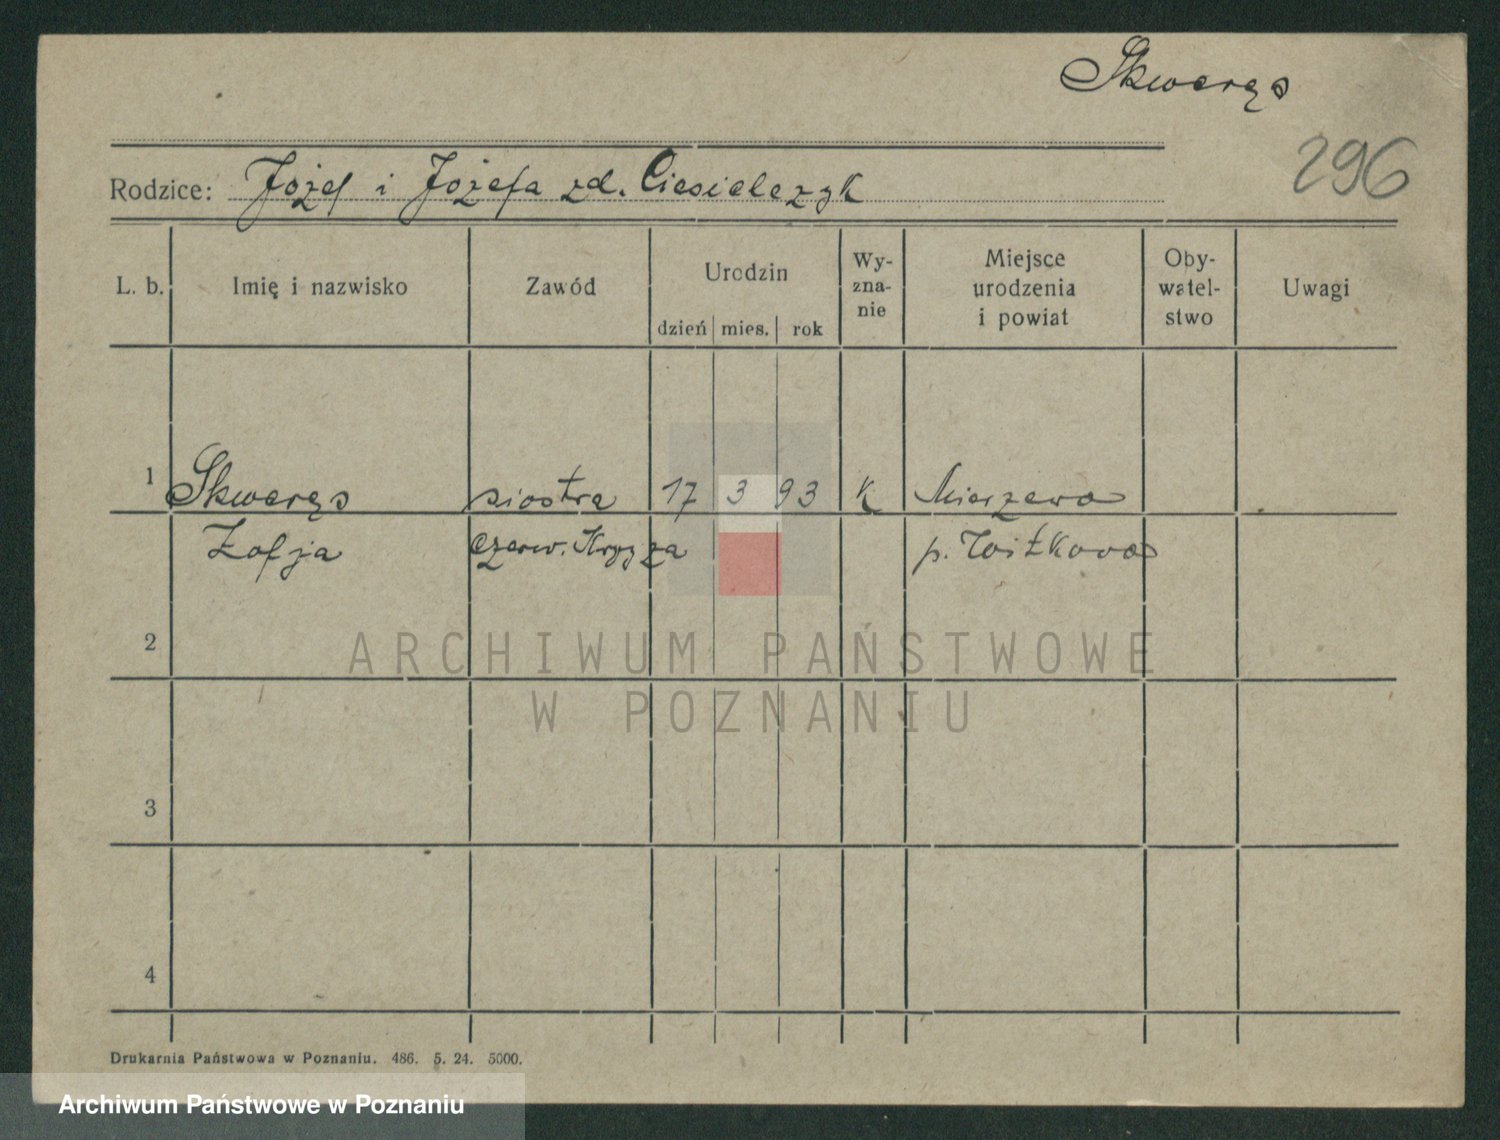 Skweręs
296
Rodzice: Józef i Józefa zd. Ciesielczyk
L. b. Imię i nazwisko Zawód Urodzin dzień mies. rok Wy-zna-nie Miejsce urodzenia i powiat Oby-watel-stwo Uwagi
1 Skweręs siostra 17 3 93 k Mierzewo
Zofja czerw. Krzyża p. Witkowo
2
3
4
Drukarnia Państwowa w Poznaniu. 486. 5. 24. 5000.
ARCHIWUM PAŃSTWOWE
W POZNANIU
Archiwum Państwowe w Poznaniu